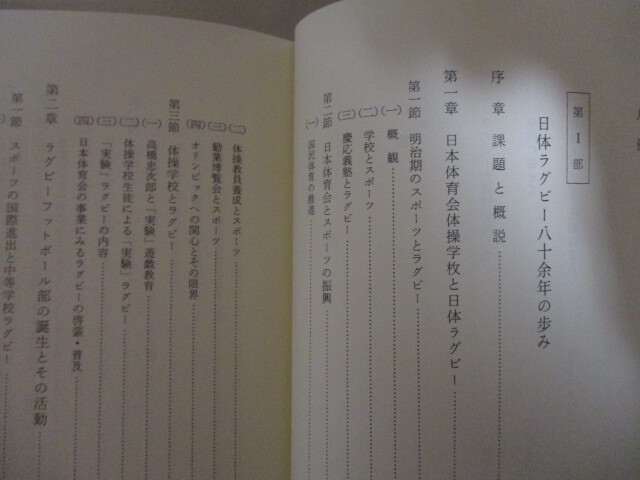 第Ⅰ部
日体ラグビー八十余年の歩み
序章 課題と概説
第一章 日本体育会体操学校と日体ラグビー
第一節 明治期のスポーツとラグビー
(一) 概観
(二) 学校とスポーツ
(三) 慶応義塾とラグビー
第二節 日本体育会とスポーツの振興
(一) 国民体育の推進
(二) 体操教員養成とスポーツ
(三) 勧業博覧会とスポーツ
(四) オリンピックへの関心とその限界
第三節 体操学校とラグビー
(一) 高橋忠次郎と「実験」遊戯教育
(二) 体操学校生徒による「実験」ラグビー
(三) 「実験」ラグビーの内容
(四) 日本体育会の事業にみるラグビーの啓蒙・普及
第二章 ラグビーフットボール部の誕生とその活動
第一節 スポーツの国際進出と中等学校ラグビー